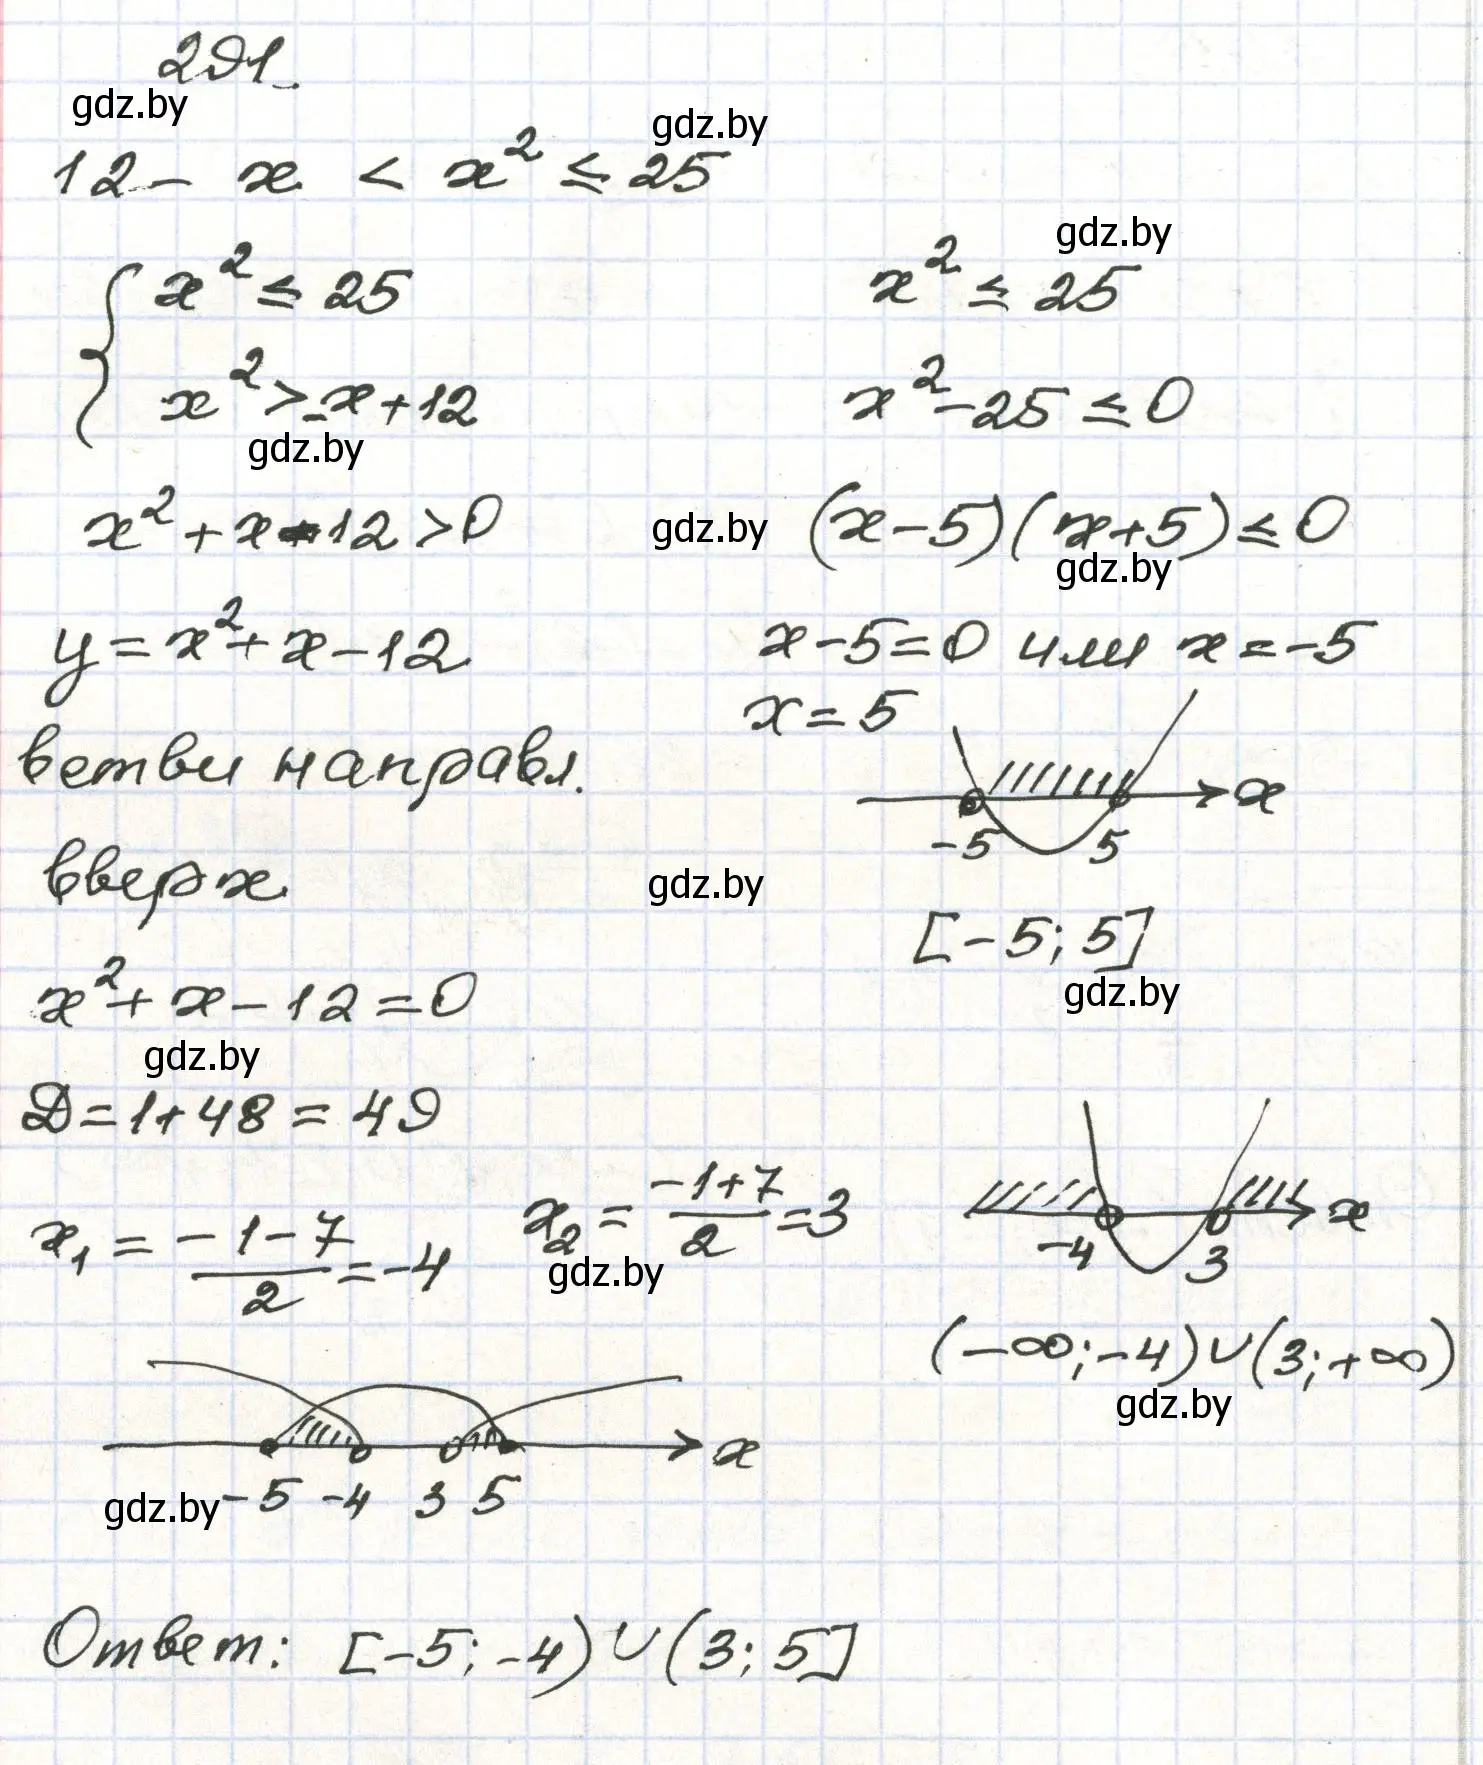 291.
gdz.by
gdz.by
12 - x < x² ≤ 25
gdz.by
{ x² ≤ 25
x² > -x + 12
gdz.by
x² + x - 12 > 0
y = x² + x - 12
ветви направл.
вверх
x² + x - 12 = 0
gdz.by
Д = 1 + 48 = 49
x₁ = (-1-7)/2 = -4
x₂ = (-1+7)/2 = 3
gdz.by
x² ≤ 25
x² - 25 ≤ 0
gdz.by
(x - 5)(x + 5) ≤ 0
gdz.by
x - 5 = 0 или x = -5
x = 5
x
-5 5
gdz.by
[-5; 5]
gdz.by
x
-4 3
(-∞; -4) ∪ (3; +∞)
gdz.by
x
gdz.by
-5 -4 3 5
Ответ: [-5; -4) ∪ (3; 5]